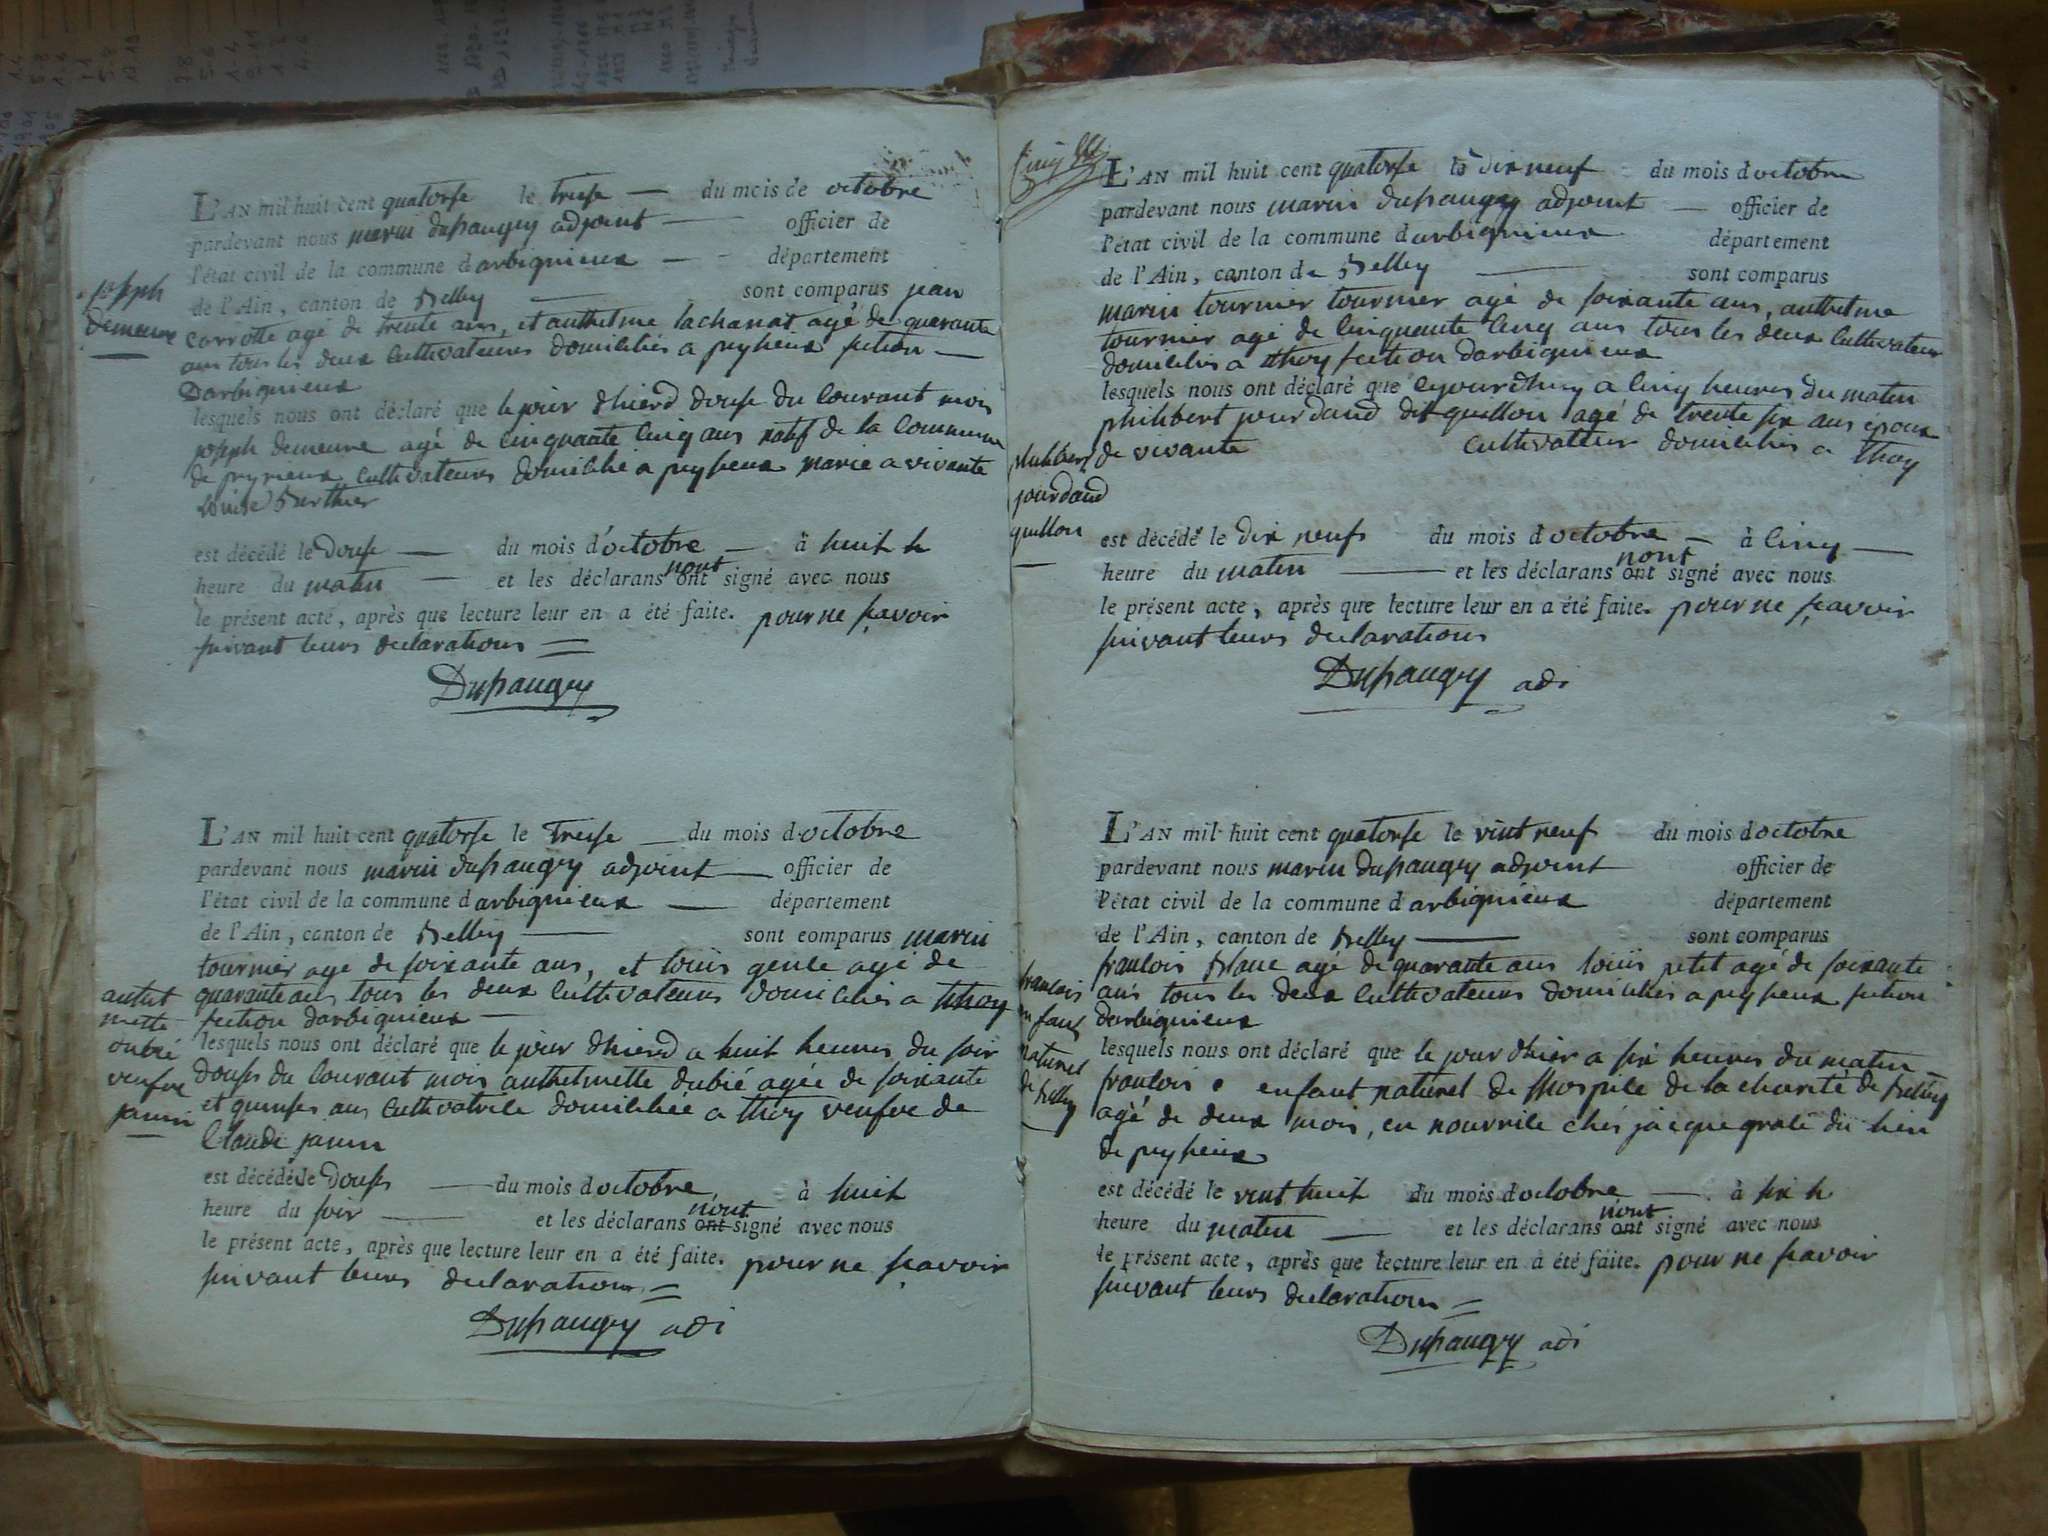 L'AN mil huit cent quatorse le treise — du mois de octobre
pardevant nous marin dupaugey adjoint — officier de
l'état civil de la commune d arbignieux — département
de l'Ain, canton de Belley — sont comparus jean
joseph
demeure
corrotte agé de trente ans, et anthelme lachanat agé de quarante
ans tous les deux Cultivateurs domiciliés a peyzieux section —
Darbignieux
lesquels nous ont déclaré que le jour d'hierd douse du Courant mois
joseph demeure agé de Cinquante Cinq ans natif de la Commune
de Cultivateurs domicilié a peyzieux marie a vivante
Louise Berthier
est décédé le Douse — du mois d'octobre — à huit h
heure du matin — et les déclarans ont nont signé avec nous
le présent acte, après que lecture leur en a été faite. pour ne sçavoir
suivant leurs declarations =
Dupaugey
L'AN mil huit cent quatorse le Treise — du mois d'octobre
pardevant nous marin dupaugey adjoint — officier de
l'état civil de la commune d arbignieux — département
de l'Ain, canton de Belley — sont comparus marin
tournier age de soixante ans, et Louis gente agé de
quarante ans tous les deux Cultivateurs domiciliés a thoy
section darbignieux —
anthel
mette
dubié
veufve
janin
lesquels nous ont déclaré que le jour d'hierd a huit heures du soir
douses du Courant mois anthelmette dubié agée de soixante
et quinses ans Cultivatrice domiciliée a thoy veufve de
Claude janin
est décédé le Douses — du mois d octobre à huit
heure du soir — et les déclarans ont nont signé avec nous
le présent acte, après que lecture leur en a été faite. pour ne sçavoir
suivant leurs declarations =
Dupaugey adi
Cinq
L'AN mil huit cent quatorse le dix neuf du mois d octobre
pardevant nous marin dupaugey adjoint — officier de
l'état civil de la commune d arbignieux département
de l'Ain, canton de Belley — sont comparus
marin tournier tournier agé de soixante ans, anthelme
tournier agé de Cinquante Cinq ans tous les deux Cultivateur
domiciliés a thoy section darbignieux
lesquels nous ont déclaré que a Cinq heures du matin
philibert jourdand dit quillon agé de trente six ans epoux
de vivante Cultivateur domiciliés a Thoy
philibert
jourdand
quillon
est décédé le dix neufs du mois d octobre — à Cinq —
heure du matin — et les déclarans ont nont signé avec nous
le présent acte, après que lecture leur en a été faite. pour ne sçavoir
suivant leurs declarations
Dupaugey adi
L'AN mil huit cent quatorse le vint neuf du mois d octobre
pardevant nous marin dupaugey adjoint officier de
l'état civil de la commune d arbignieux département
de l'Ain, canton de Belley — sont comparus
francois blanc agé de quarante ans Louis petit agé de soixante
ans tous les deux Cultivateurs domiciliés a peyzieux section
darbignieux
francois
enfant
naturel
de belley
lesquels nous ont déclaré que le jour d'hier a six heures du matin
francois enfant naturel de lhospice de la charité de belley
agé de deux mois, en nourrice chés jacque du lieu
de peyzieux
est décédé le vint huit du mois d octobre — à six h
heure du matin — et les déclarans ont nont signé avec nous
le présent acte, après que lecture leur en a été faite. pour ne sçavoir
suivant leurs declarations =
Dupaugey adi